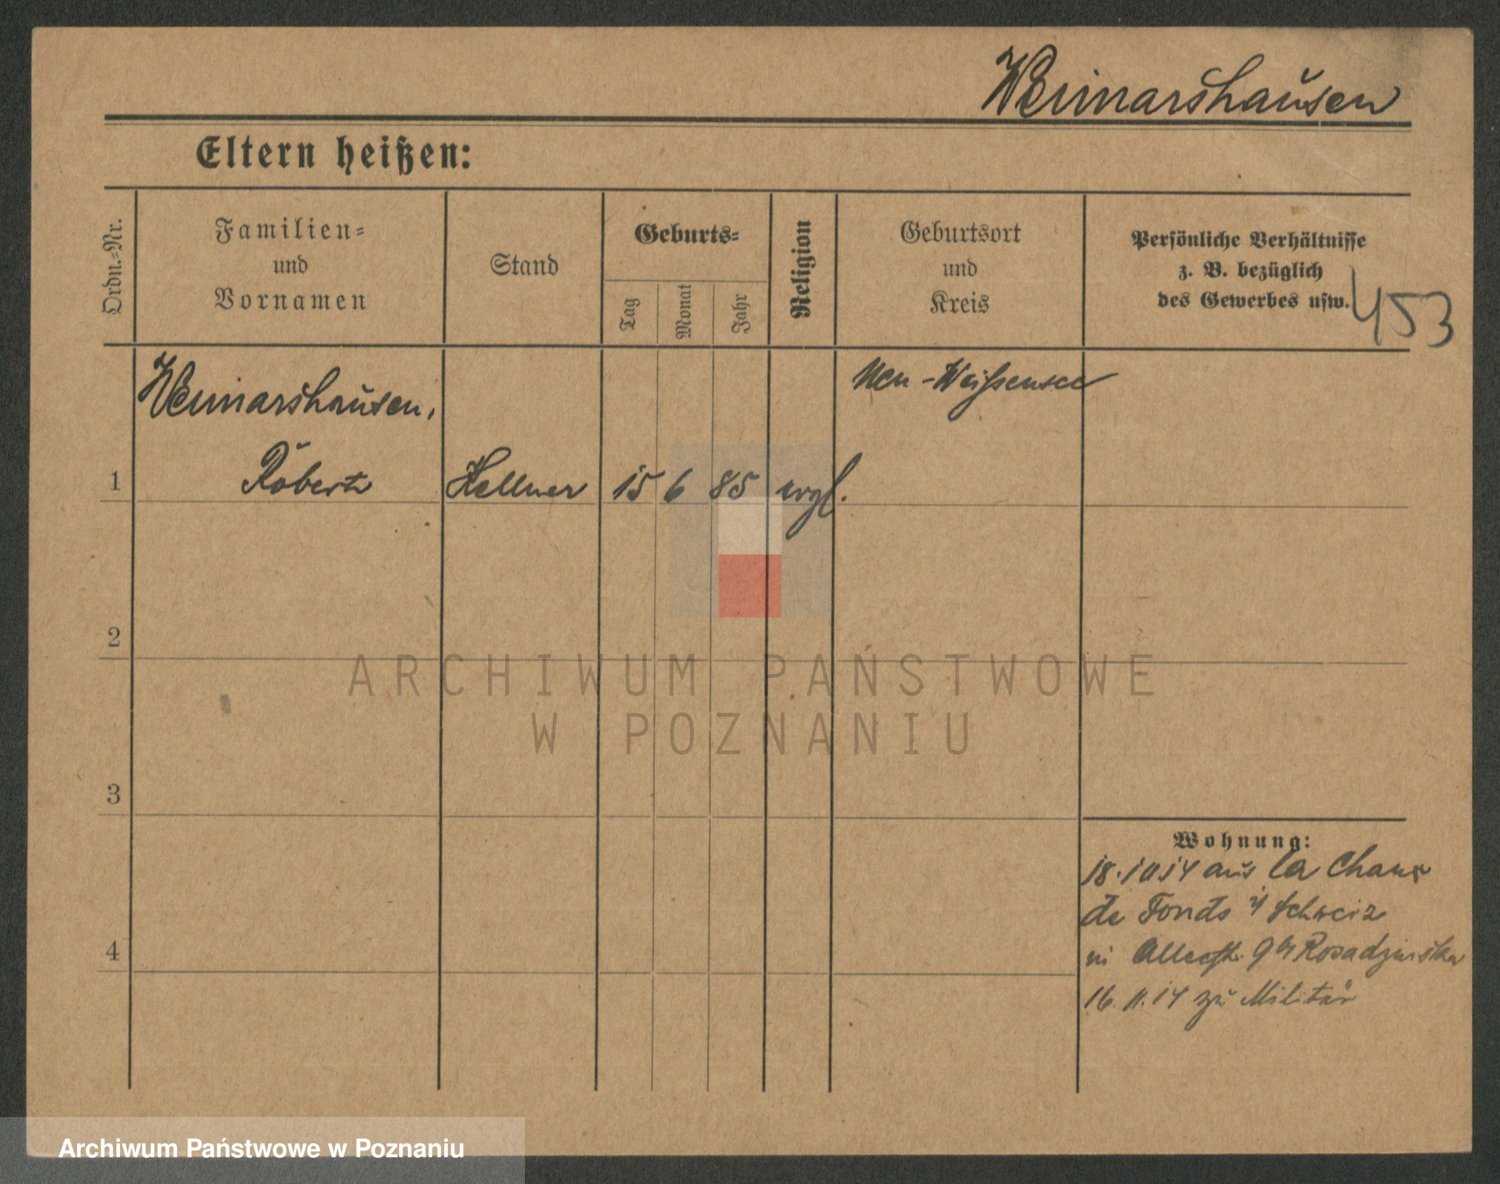 Weimarshausen
Eltern heißen:
Ordn.-Nr.
Familien-
und
Vornamen
Stand
Geburts-
Tag
Monat
Jahr
Religion
Geburtsort
und
Kreis
Persönliche Verhältnisse
z. B. bezüglich
des Gewerbes usw.
453
Weimarshausen,
Neu-Weißensee
1
Robert
Kellner
15
6
85
evgl.
2
ARCHIWUM PAŃSTWOWE
W POZNANIU
3
Wohnung:
18.10 14 aus la Chaux
de Fonds Schweiz
in 9 Rosadzinska
4
16.11.14 zu Militär
Archiwum Państwowe w Poznaniu